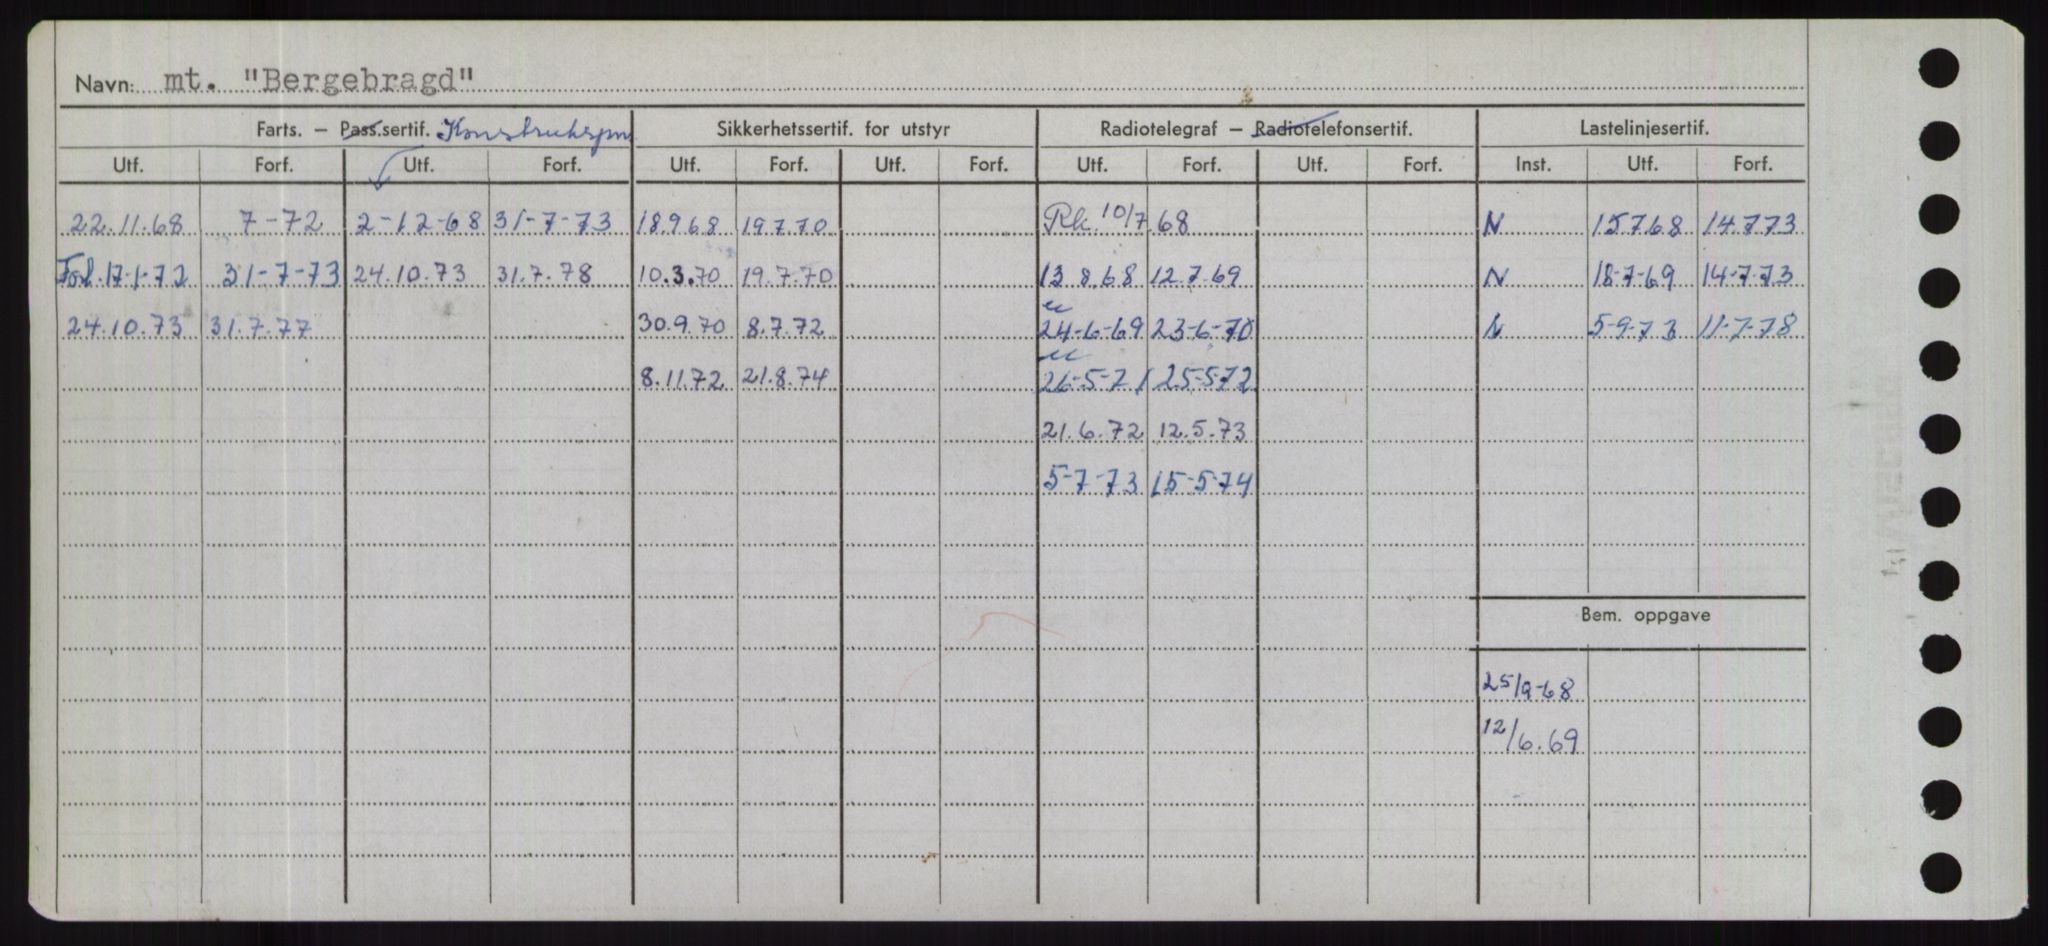 Navn: mt. "Bergebragd"
Farts. – Pass.sertif. Konstruksjon Sikkerhetssertif. for utstyr Radiotelegraf – Radiotelefonsertif. Lastelinjesertif.
Utf. Forf. Utf. Forf. Utf. Forf. Utf. Forf. Utf. Forf. Utf. Forf. Inst. Utf. Forf.
22.11.68 7-72 2-12-68 31-7-73 18.9.68 19.7.70 Rk. 10/7.68 N 15.7.68 14.7.73
Forl. 17-1-72 31-7-73 24.10.73 31.7.78 10.3.70 19.7.70 13.8.68 12.7.69 N 18-7-69 14-7-73
24.10.73 31.7.77 30.9.70 8.7.72 24-6-69 23-6-70 N 5-9-73 11-7-78
8.11.72 21.8.74 26-5-71 25-5-72
21.6.72 12.5.73
5-7-73 15-5-74
Bem. oppgave
25/9-68
12/6.69